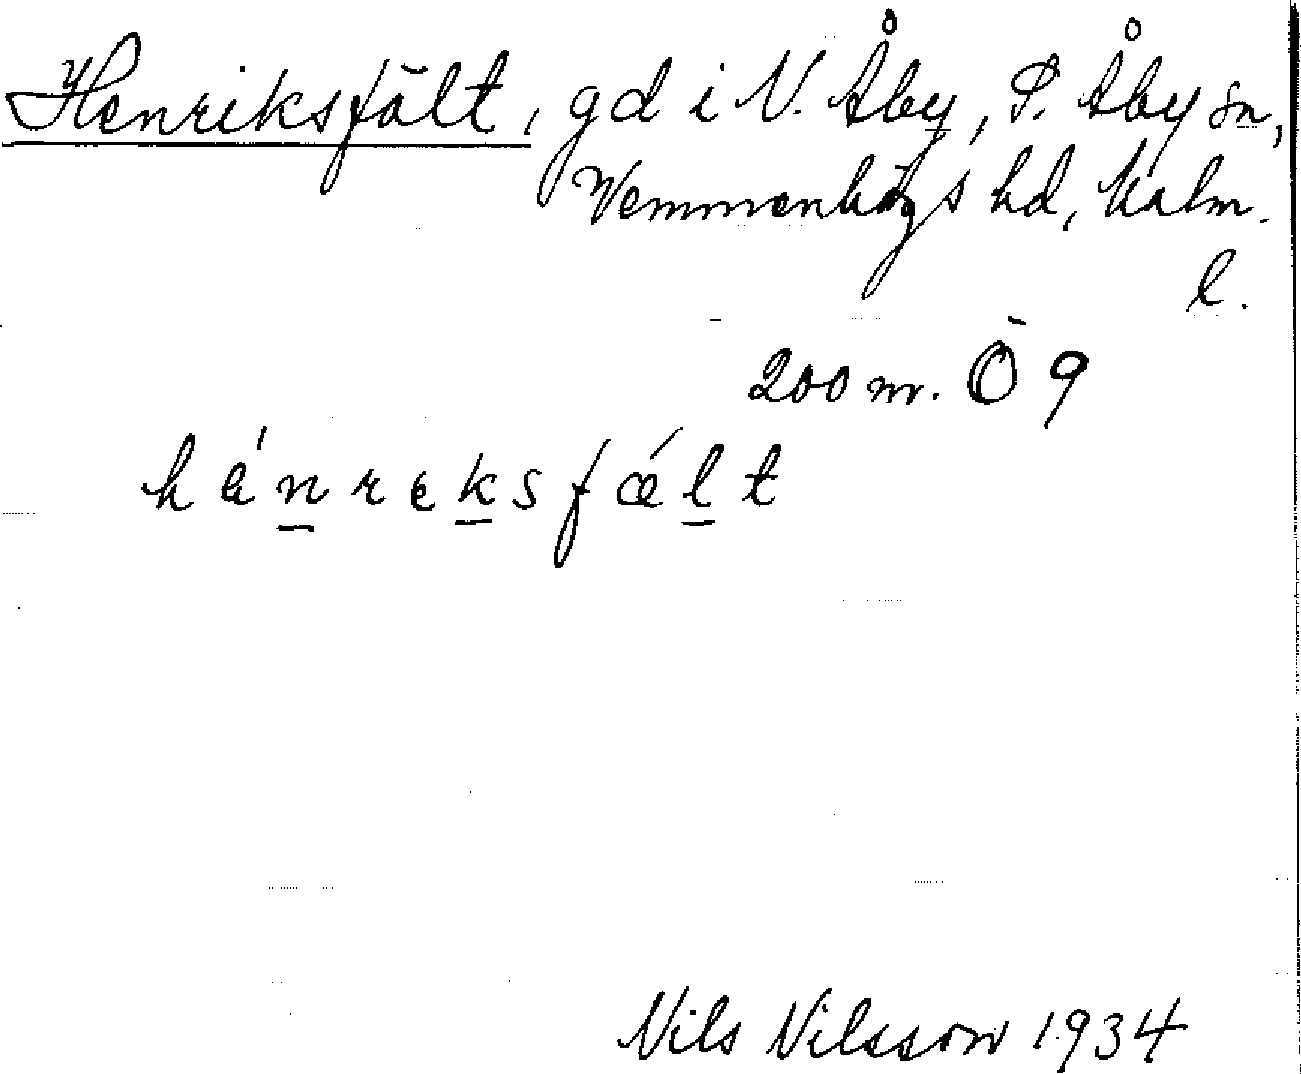 Henriksfält, gd i N. Åby, S. Åby sn,
Vemmenhögs hd, Malm.
l.
200 m. Ö 9
hénreksfǽlt
Nils Nilsson 1934